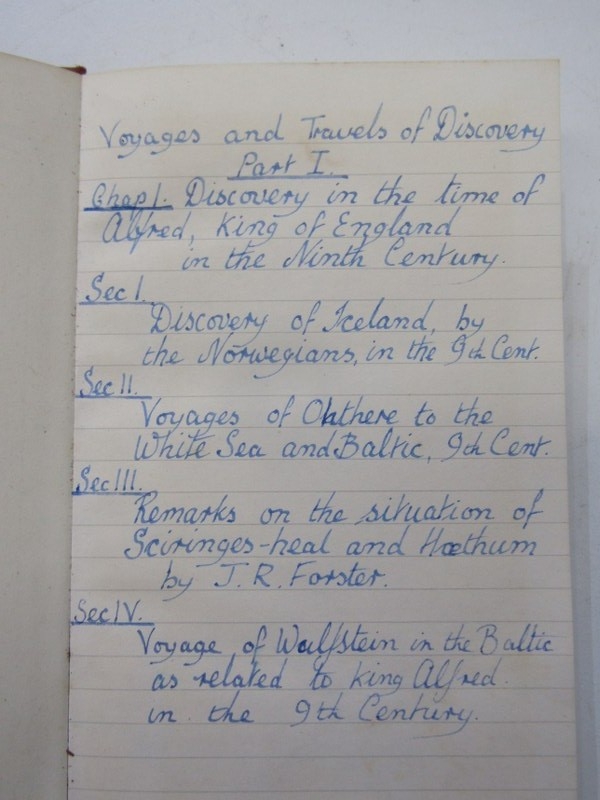 Voyages and Travels of Discovery
Part I.
Chap I. Discovery in the time of
Alfred, King of England
in the Ninth Century.
Sec I.
Discovery of Iceland, by
the Norwegians, in the 9th Cent.
Sec II.
Voyages of Ohthere to the
White Sea and Baltic, 9th Cent.
Sec III.
Remarks on the situation of
Sciringes-heal and Hæthum
by J. R. Forster.
Sec IV.
Voyage of Wulfstein in the Baltic
as related to King Alfred.
in the 9th Century.